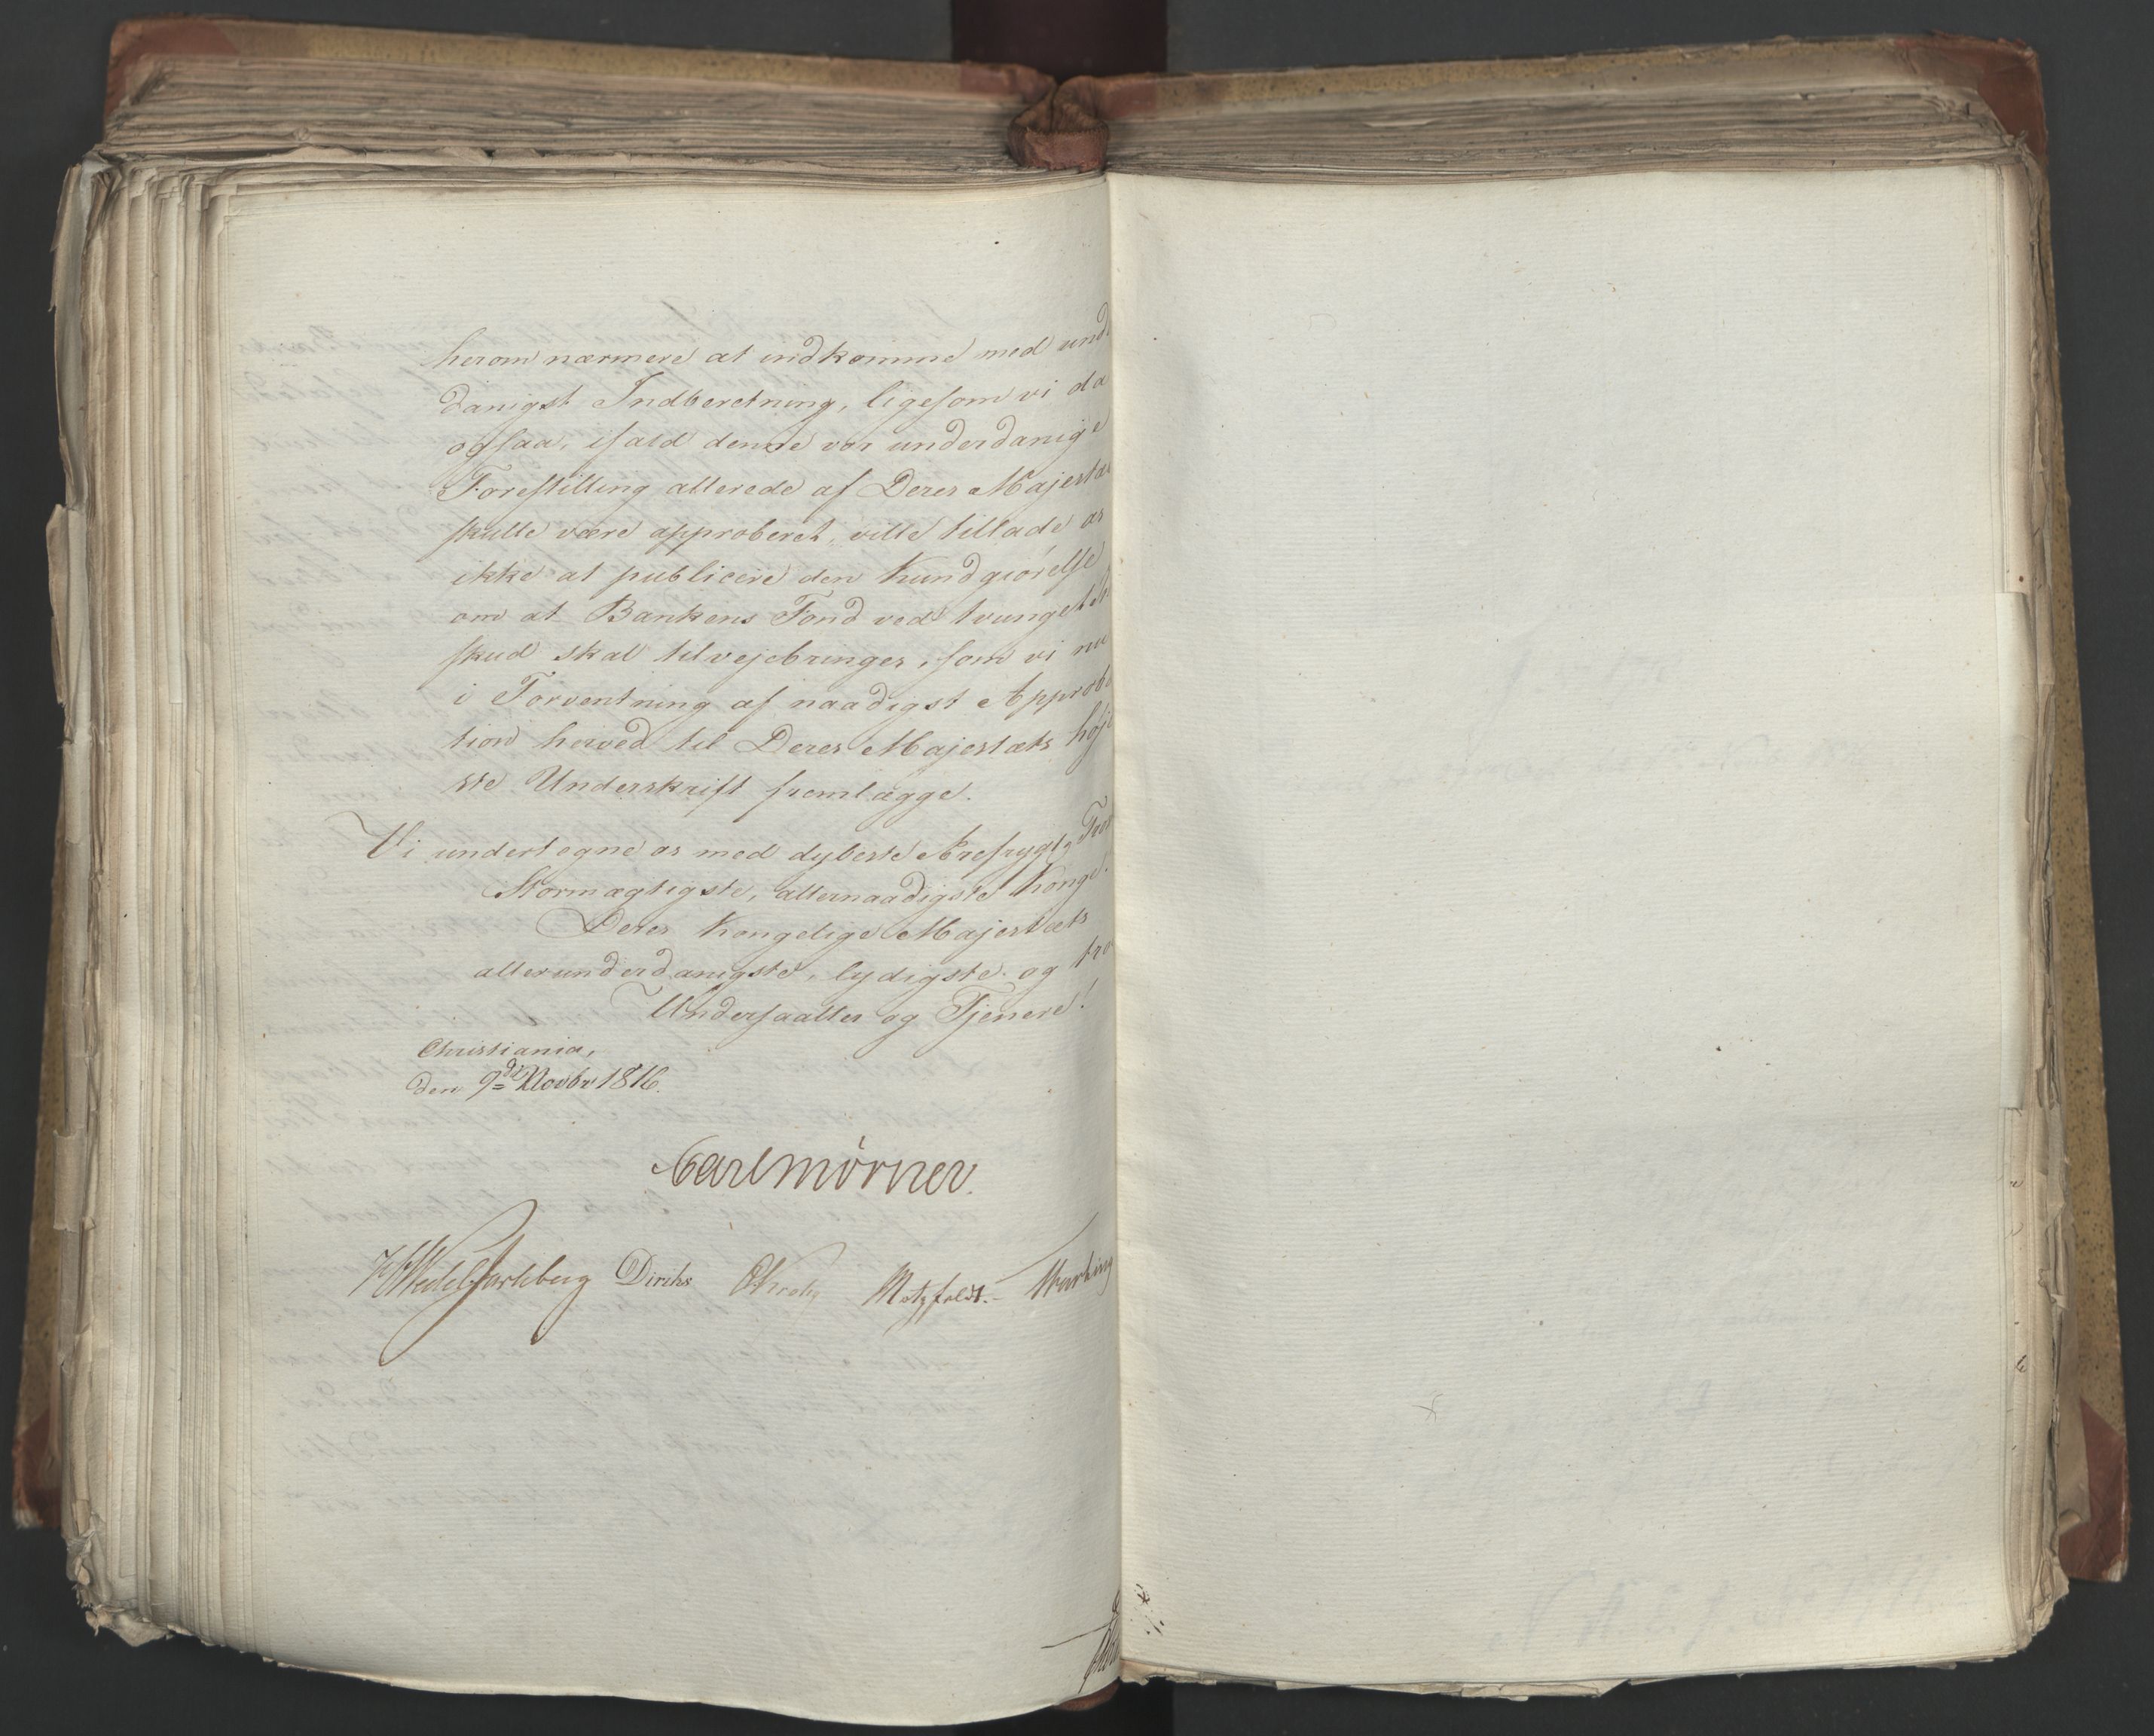 herom nærmere at indkomme med und
danigst Indberetning, ligesom vi da
ogsaa, ifald denne vor underdanige
Forestilling allerede af Deres Majestæ
skulle være approberet, ville tillade os
ikke at publicere den Kundgiørelse
om at Bankens Fond ved tvunget
skud skal tilvejebringes, som vi nu
i Forventning af naadigst Approba
tion herved til Deres Majestæts høje
ste Underskrift fremlægge.
Vi undertegne os med dybeste Ærefrygt,
Stormægtigste, allernaadigste Konge!
Deres Kongelige Majestæts
allerunderdanigste, lydigste og tro
Undersaatter og Tjenere!
Christiania,
den 9de Novbr 1816.
Carl Mörner.
Wedel Jarlsberg Diriks Krohg Motzfeldt.